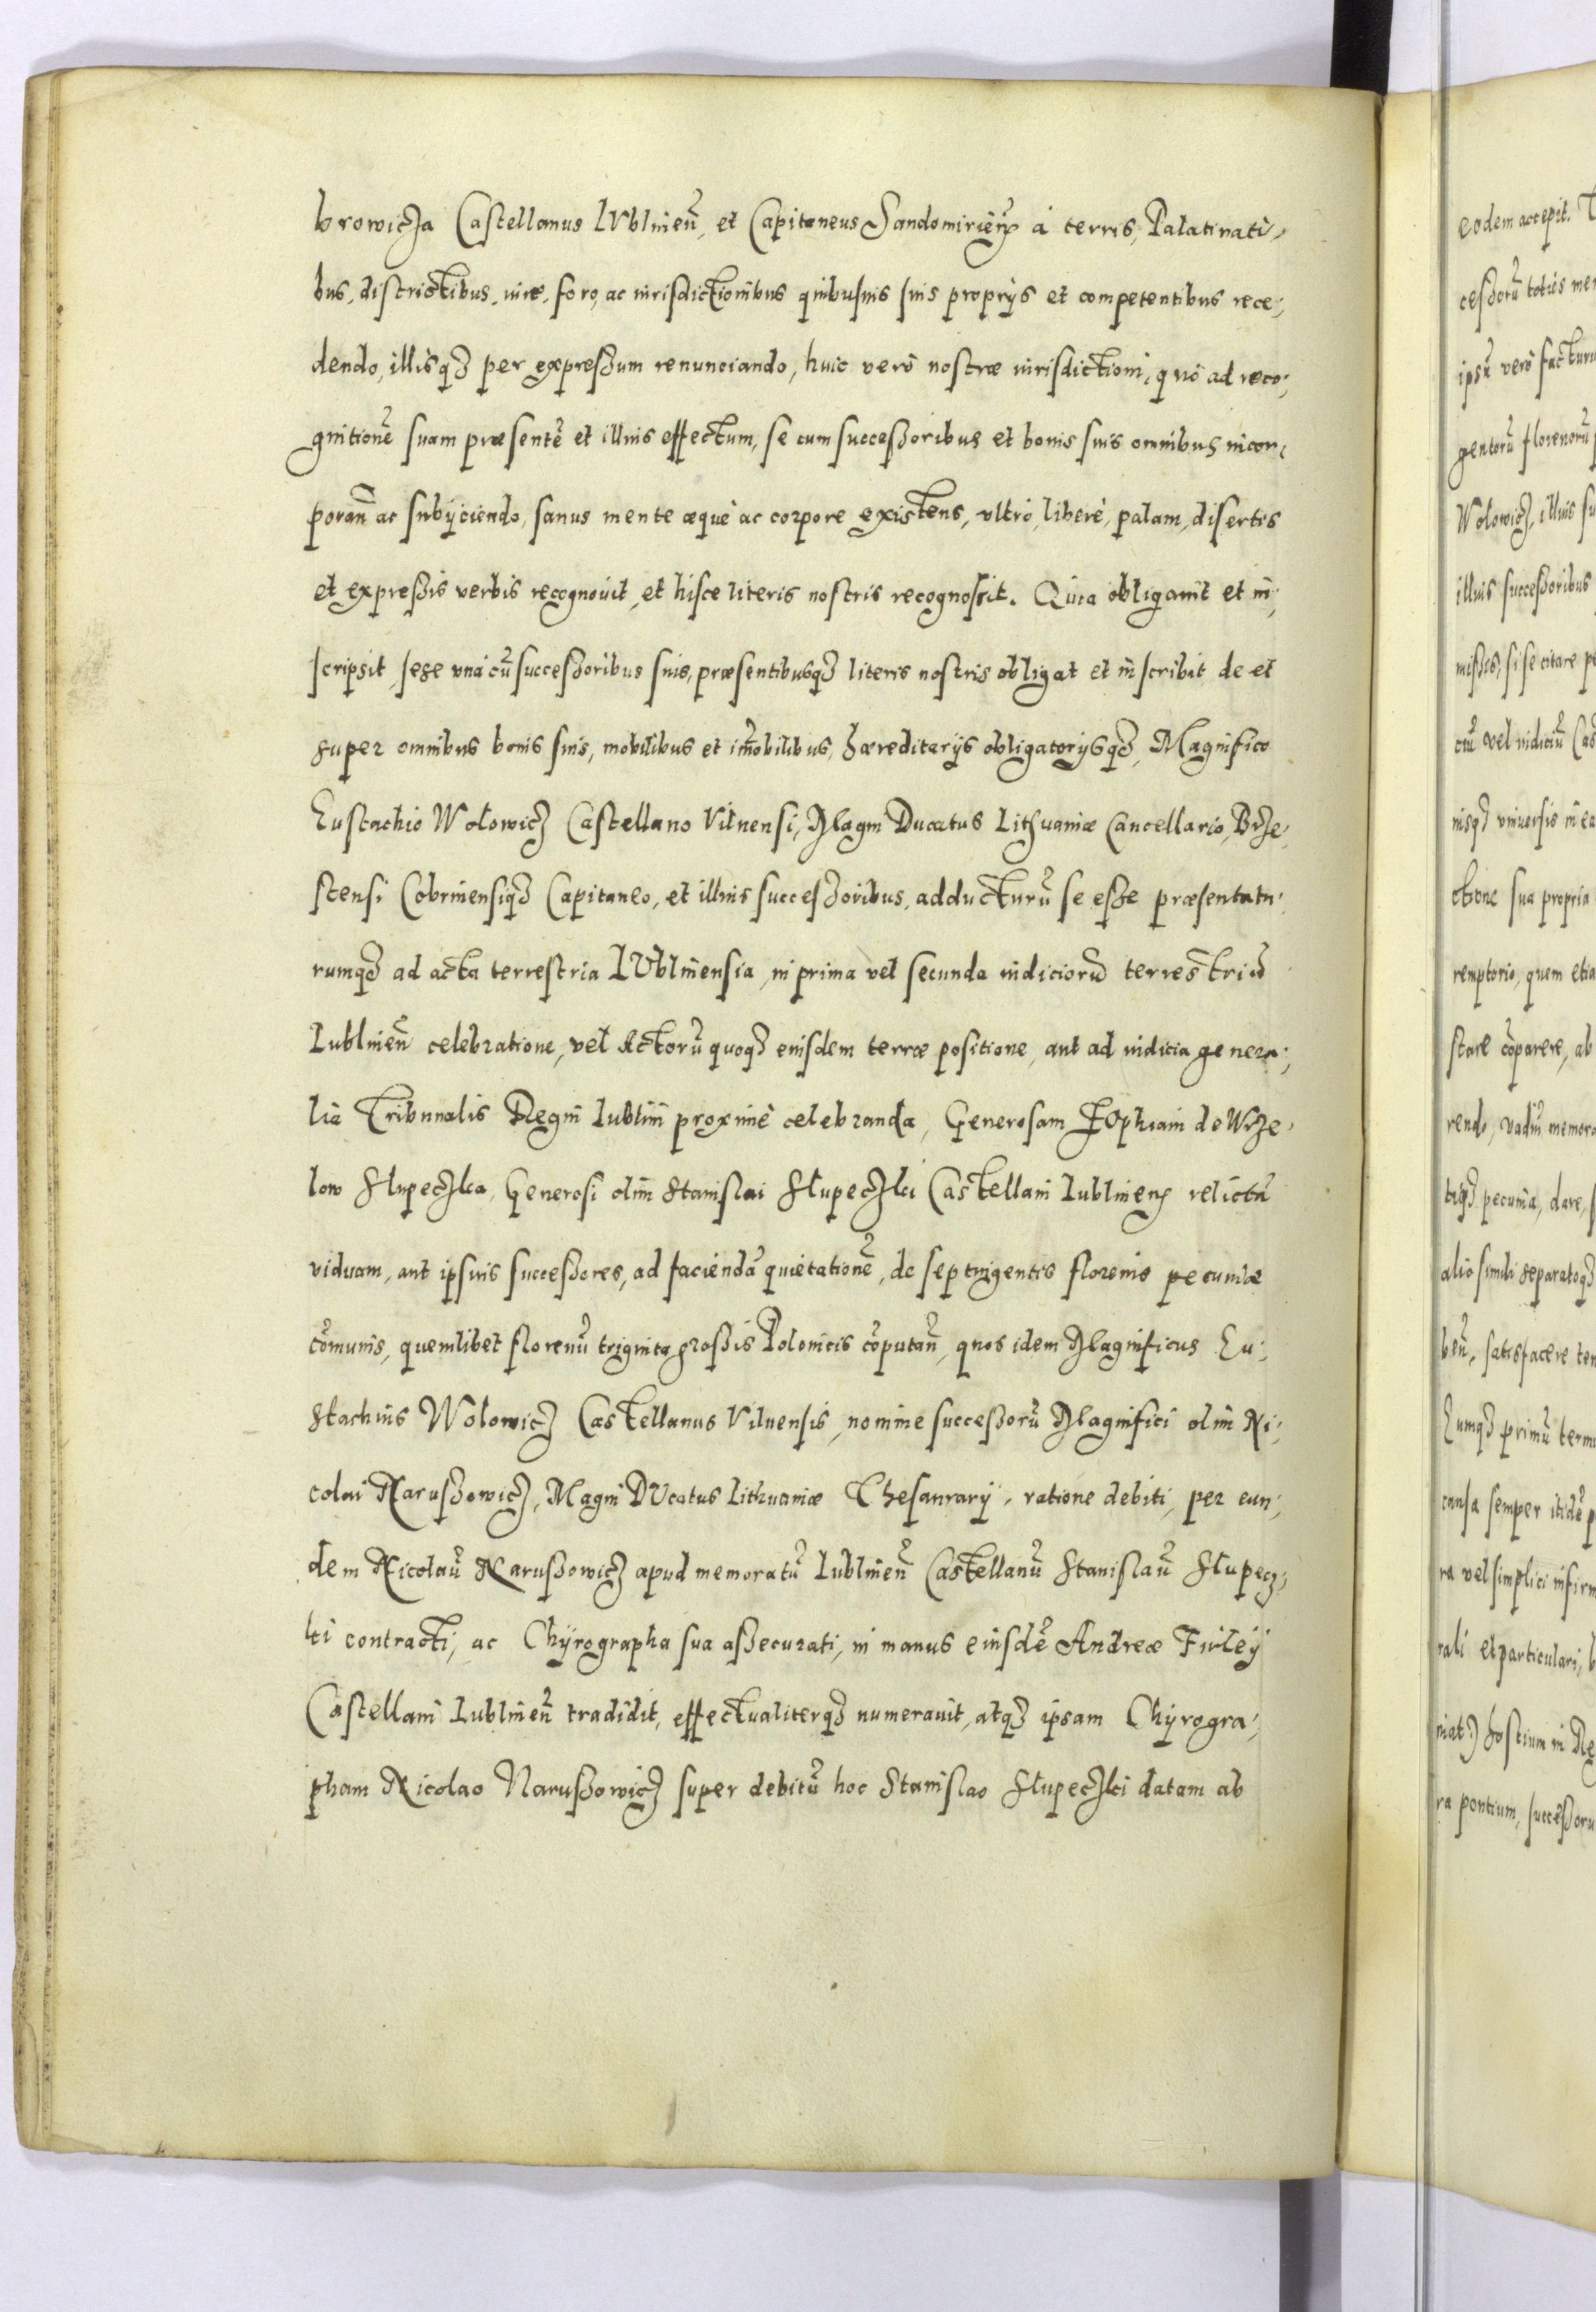 browicza Castellanus LVblineñ, et Capitaneus Sandomirieñ à terris, Palatinati-
bus, districtibus, iure, foro, ac iurisdictionibus quibusuis suis proprijs et competentibus rece-
dendo, illisq₃ per expressum renunciando, huic verò nostræ iurisdictioni, quò ad reco-
gnitionẽ suam præsentẽ et illius effectum, se cum successoribus et bonis suis omnibus incor-
porañ ac subijciendo, sanus mente æquè ac corpore existens, vltrò, liberè, palam, disertis
et expressis verbis recognouit, et hisce literis nostris recognoscit. Quia obligauit et in-
scripsit sese vnà cũ successoribus suis, præsentibusq₃ literis nostris obligat et inscribit de et
super omnibus bonis suis, mobilibus et im̃obilibus, hæreditarijs obligatorijsq₃, Magnifico
Eustachio Wolowicz Castellano Vilnensi, Magni Ducatus Lithuaniæ Cancellario, Brze-
stensi Cobrinensiq₃ Capitaneo, et illius successoribus, adducturũ se esse præsentatu-
rumq₃ ad acta terrestria LVblinensia, in prima vel secunda iudiciorũ terrestriũ
Lublineñ celebratione, vel Actorũ quoq₃ eiusdem terræ positione, aut ad iudicia genera-
lia Tribunalis Regni Lublini proximè celebranda, Generosam ZOphiam de Wrze-
low Slupeczka, Generosi olim Stanislai Slupeczki Castellani Lublineñ relictã
viduam, aut ipsius successores, ad faciendã quietationẽ, de septingentis florenis pecuniæ
cõmunis, quemlibet florenũ triginta grossis Polonicis cõputañ, quos idem Magnificus Eu-
stachius Wolowicz Castellanus Vilnensis, nomine successorũ Magnifici olim Ni-
colai Narussowicz, Magni DVcatus Lithuaniæ Thesaurarij, ratione debiti, per eun-
dem Nicolaũ Narussowicz apud memoratũ Lublineñ Castellanũ Stanislaũ Slupecz-
ki contracti, ac Chÿrographa sua assecurati, in manus eiusdẽ Andreæ Firleÿ
Castellani Lublineñ tradidit, effectualiterq₃ numerauit, atq₃ ipsam Chÿrogra-
pham Nicolao Narussowicz super debitũ hoc Stanislao Slupeczki datam ab
eodem accepit.
cessorũ toties
ipsũ verò
gentorũ florenorũ
Wolowicz, illius
illius successoribus
missis, si se citare
ciũ vel iudiciũ
nisq₃ vniuersis in
sua propria
remptorio, quem
stare cõparere, ab
rendo, vadiũ
pecunia, dare,
alio simili separatoq₃
beñ, satisfacere
Eumq₃ primũ
causa semper itidẽ
ra vel simplici
rali et particulari,
niat) hostium in
ra pontium,